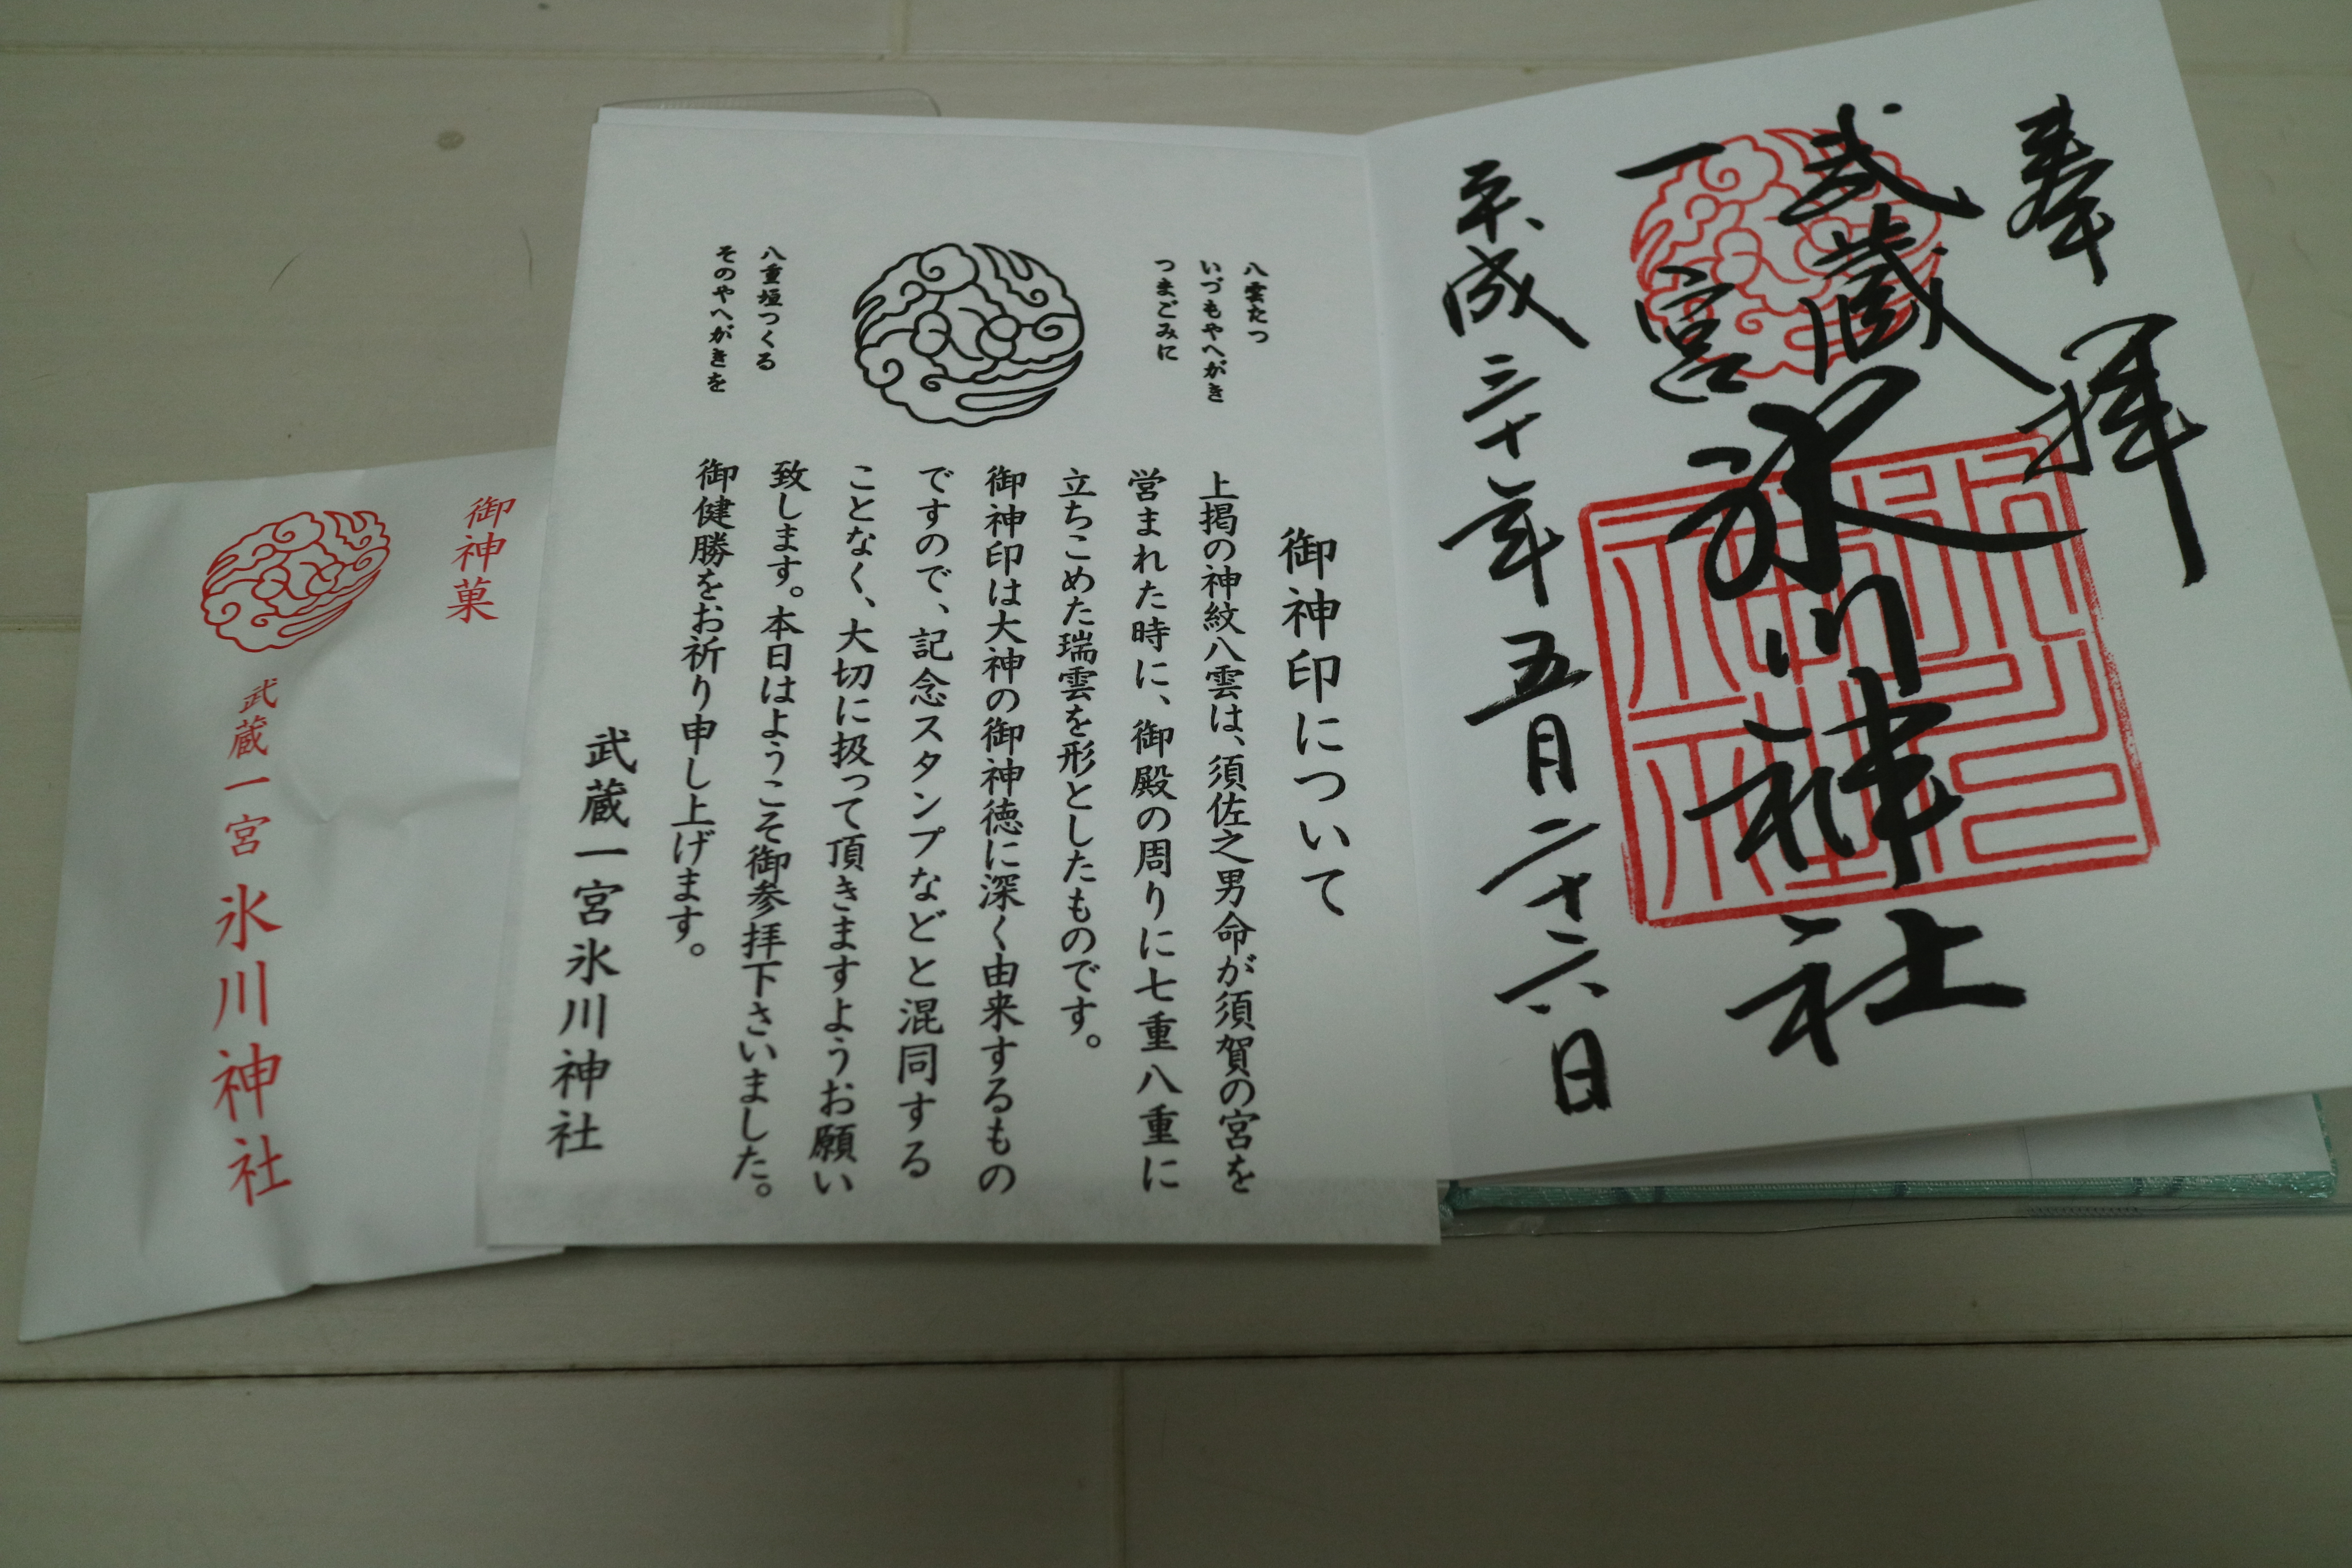 奉拝
武蔵
一宮
氷川神社
平成三十年五月二十六日
氷川神社
御神印について
八雲たつ
いづもやへがき
つまごみに
八重垣つくる
そのやへがきを
上掲の神紋八雲は、須佐之男命が須賀の宮を
営まれた時に、御殿の周りに七重八重に
立ちこめた瑞雲を形としたものです。
御神印は大神の御神徳に深く由来するもの
ですので、記念スタンプなどと混同する
ことなく、大切に扱って頂きますようお願い
致します。本日はようこそ御参拝下さいました。
御健勝をお祈り申し上げます。
武蔵一宮氷川神社
御神菓
武蔵一宮氷川神社